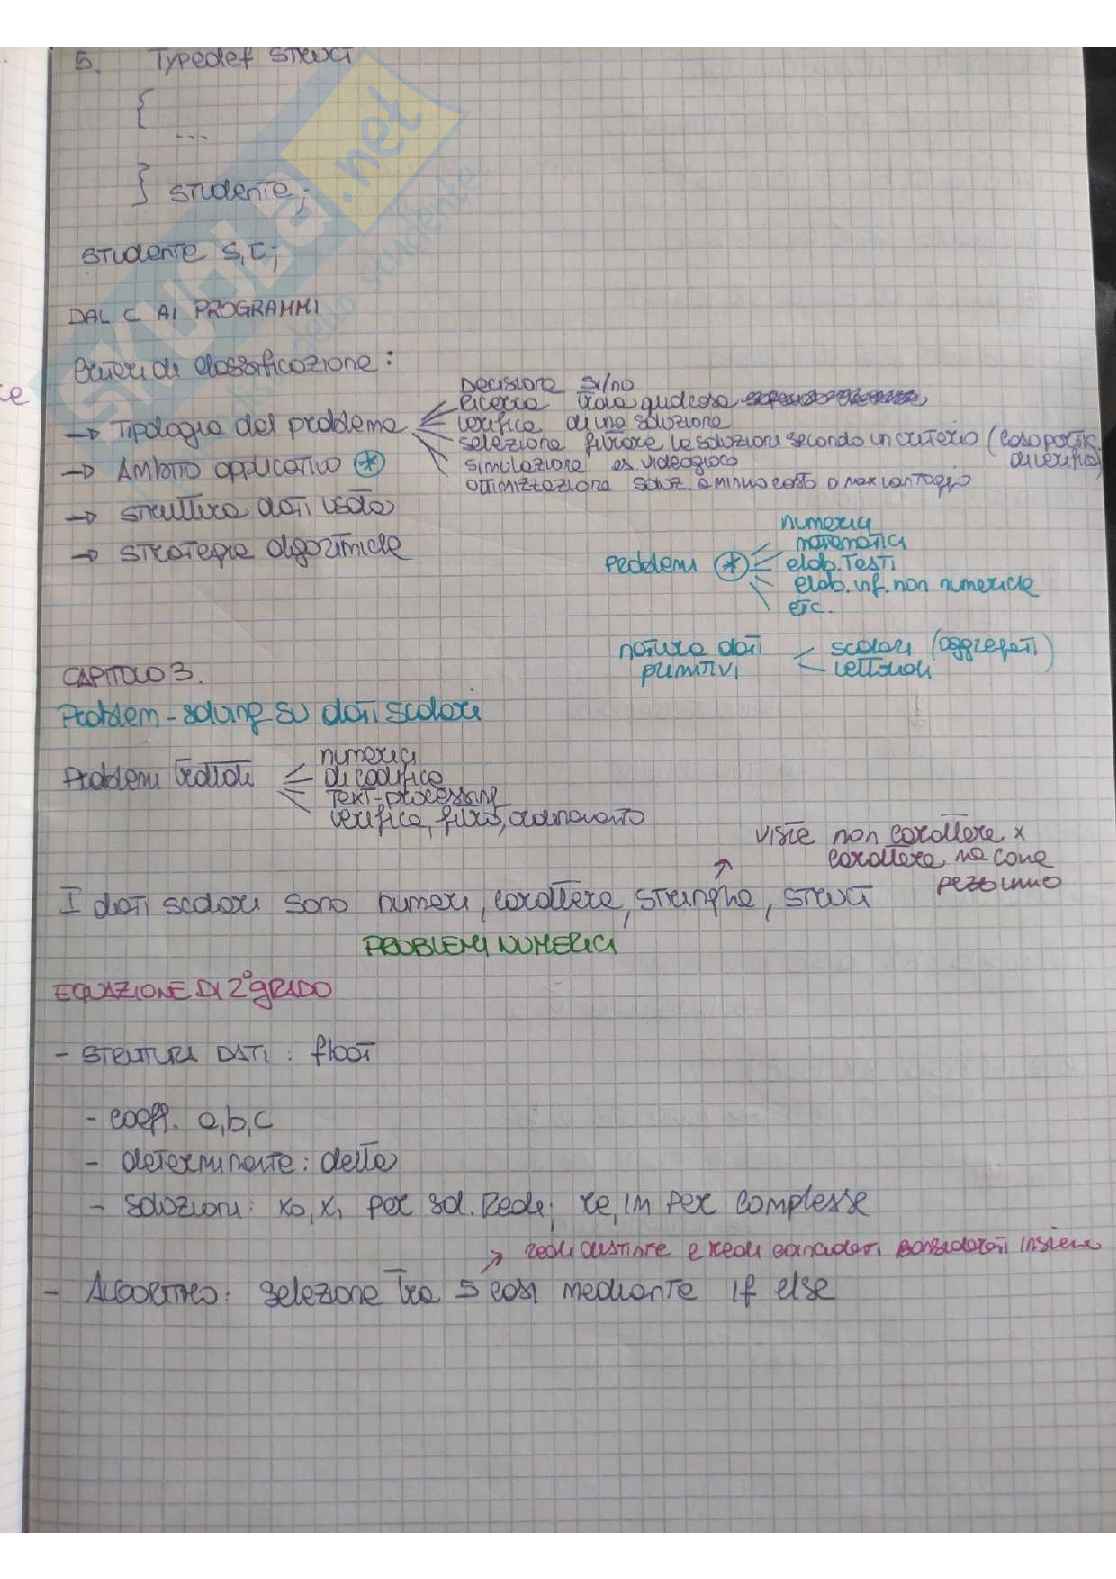 5. Typedef struct
{
...
} studente;
studente s, t;
DAL C AI PROGRAMMI
Criteri di classificazione:
→ Tipologia del problema
Decisione si/no
ricerca trova qualcosa
verifica di una soluzione
selezione filtrare le soluzioni secondo un criterio (caso partic. di verifica)
simulazione es. videogioco
ottimizzazione soluz. a minimo costo o max vantaggio
→ Ambito applicativo *
→ struttura dati usata
→ strategia algoritmica
Problemi *
numerici
matematici
elab. testi
elab. inf. non numeriche
etc.
natura dati primitivi
scalari (aggregati)
vettoriali
CAPITOLO 3.
Problem-solving su dati scalari
Problemi trattati
numerici
di codifica
text-processing
verifica, filtro, ordinamento
viste non carattere x
carattere ma come
pezzo unico
I dati scalari sono numeri, carattere, stringhe, struct
PROBLEMI NUMERICI
EQUAZIONE DI 2° GRADO
- STRUTTURA DATI: float
- coeff. a,b,c
- determinante: delta
- soluzioni: x0, x1 per sol. Reale; re, im per complesse
→ reali distinte e reali coincidenti considerati insieme
- ALGORITMO: selezione tra 5 casi mediante if else